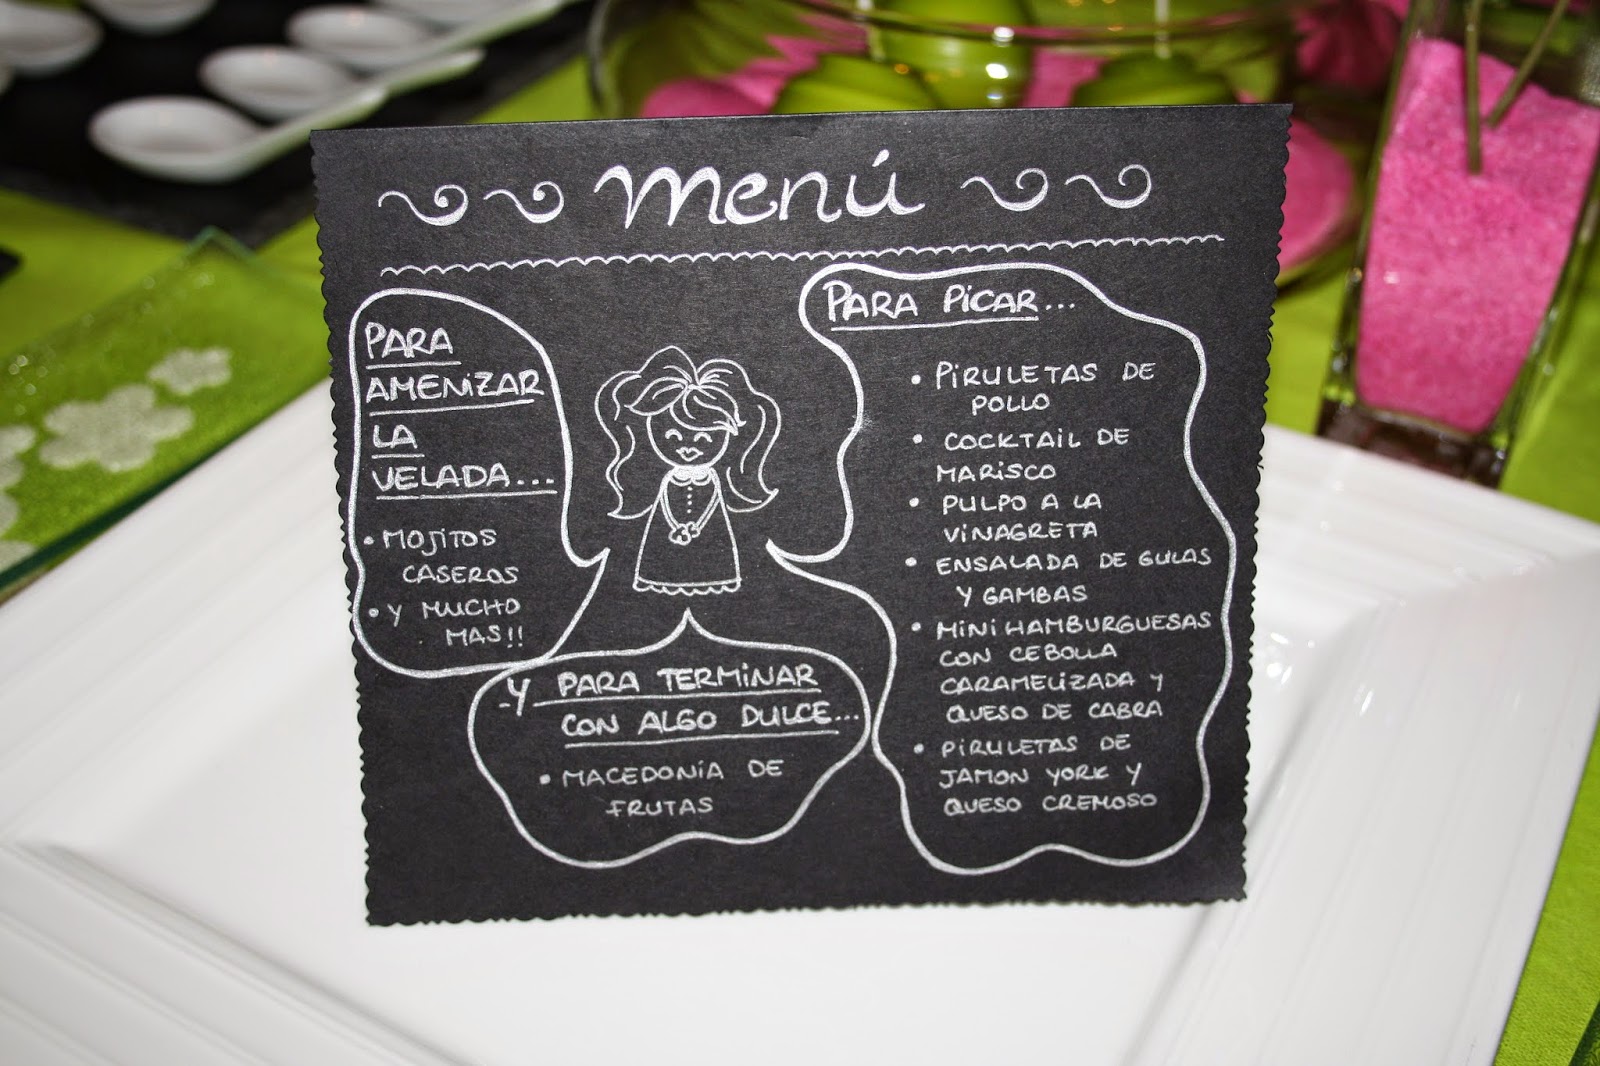 Menú
PARA
AMENIZAR
LA
VELADA...
• MOJITOS
CASEROS
• Y MUCHO
MAS!!
PARA PICAR...
• PIRULETAS DE
POLLO
• COCKTAIL DE
MARISCO
• PULPO A LA
VINAGRETA
• ENSALADA DE GULAS
Y GAMBAS
• MINI HAMBURGUESAS
CON CEBOLLA
CARAMELIZADA Y
QUESO DE CABRA
• PIRULETAS DE
JAMON YORK Y
QUESO CREMOSO
Y PARA TERMINAR
CON ALGO DULCE...
• MACEDONIA DE
FRUTAS